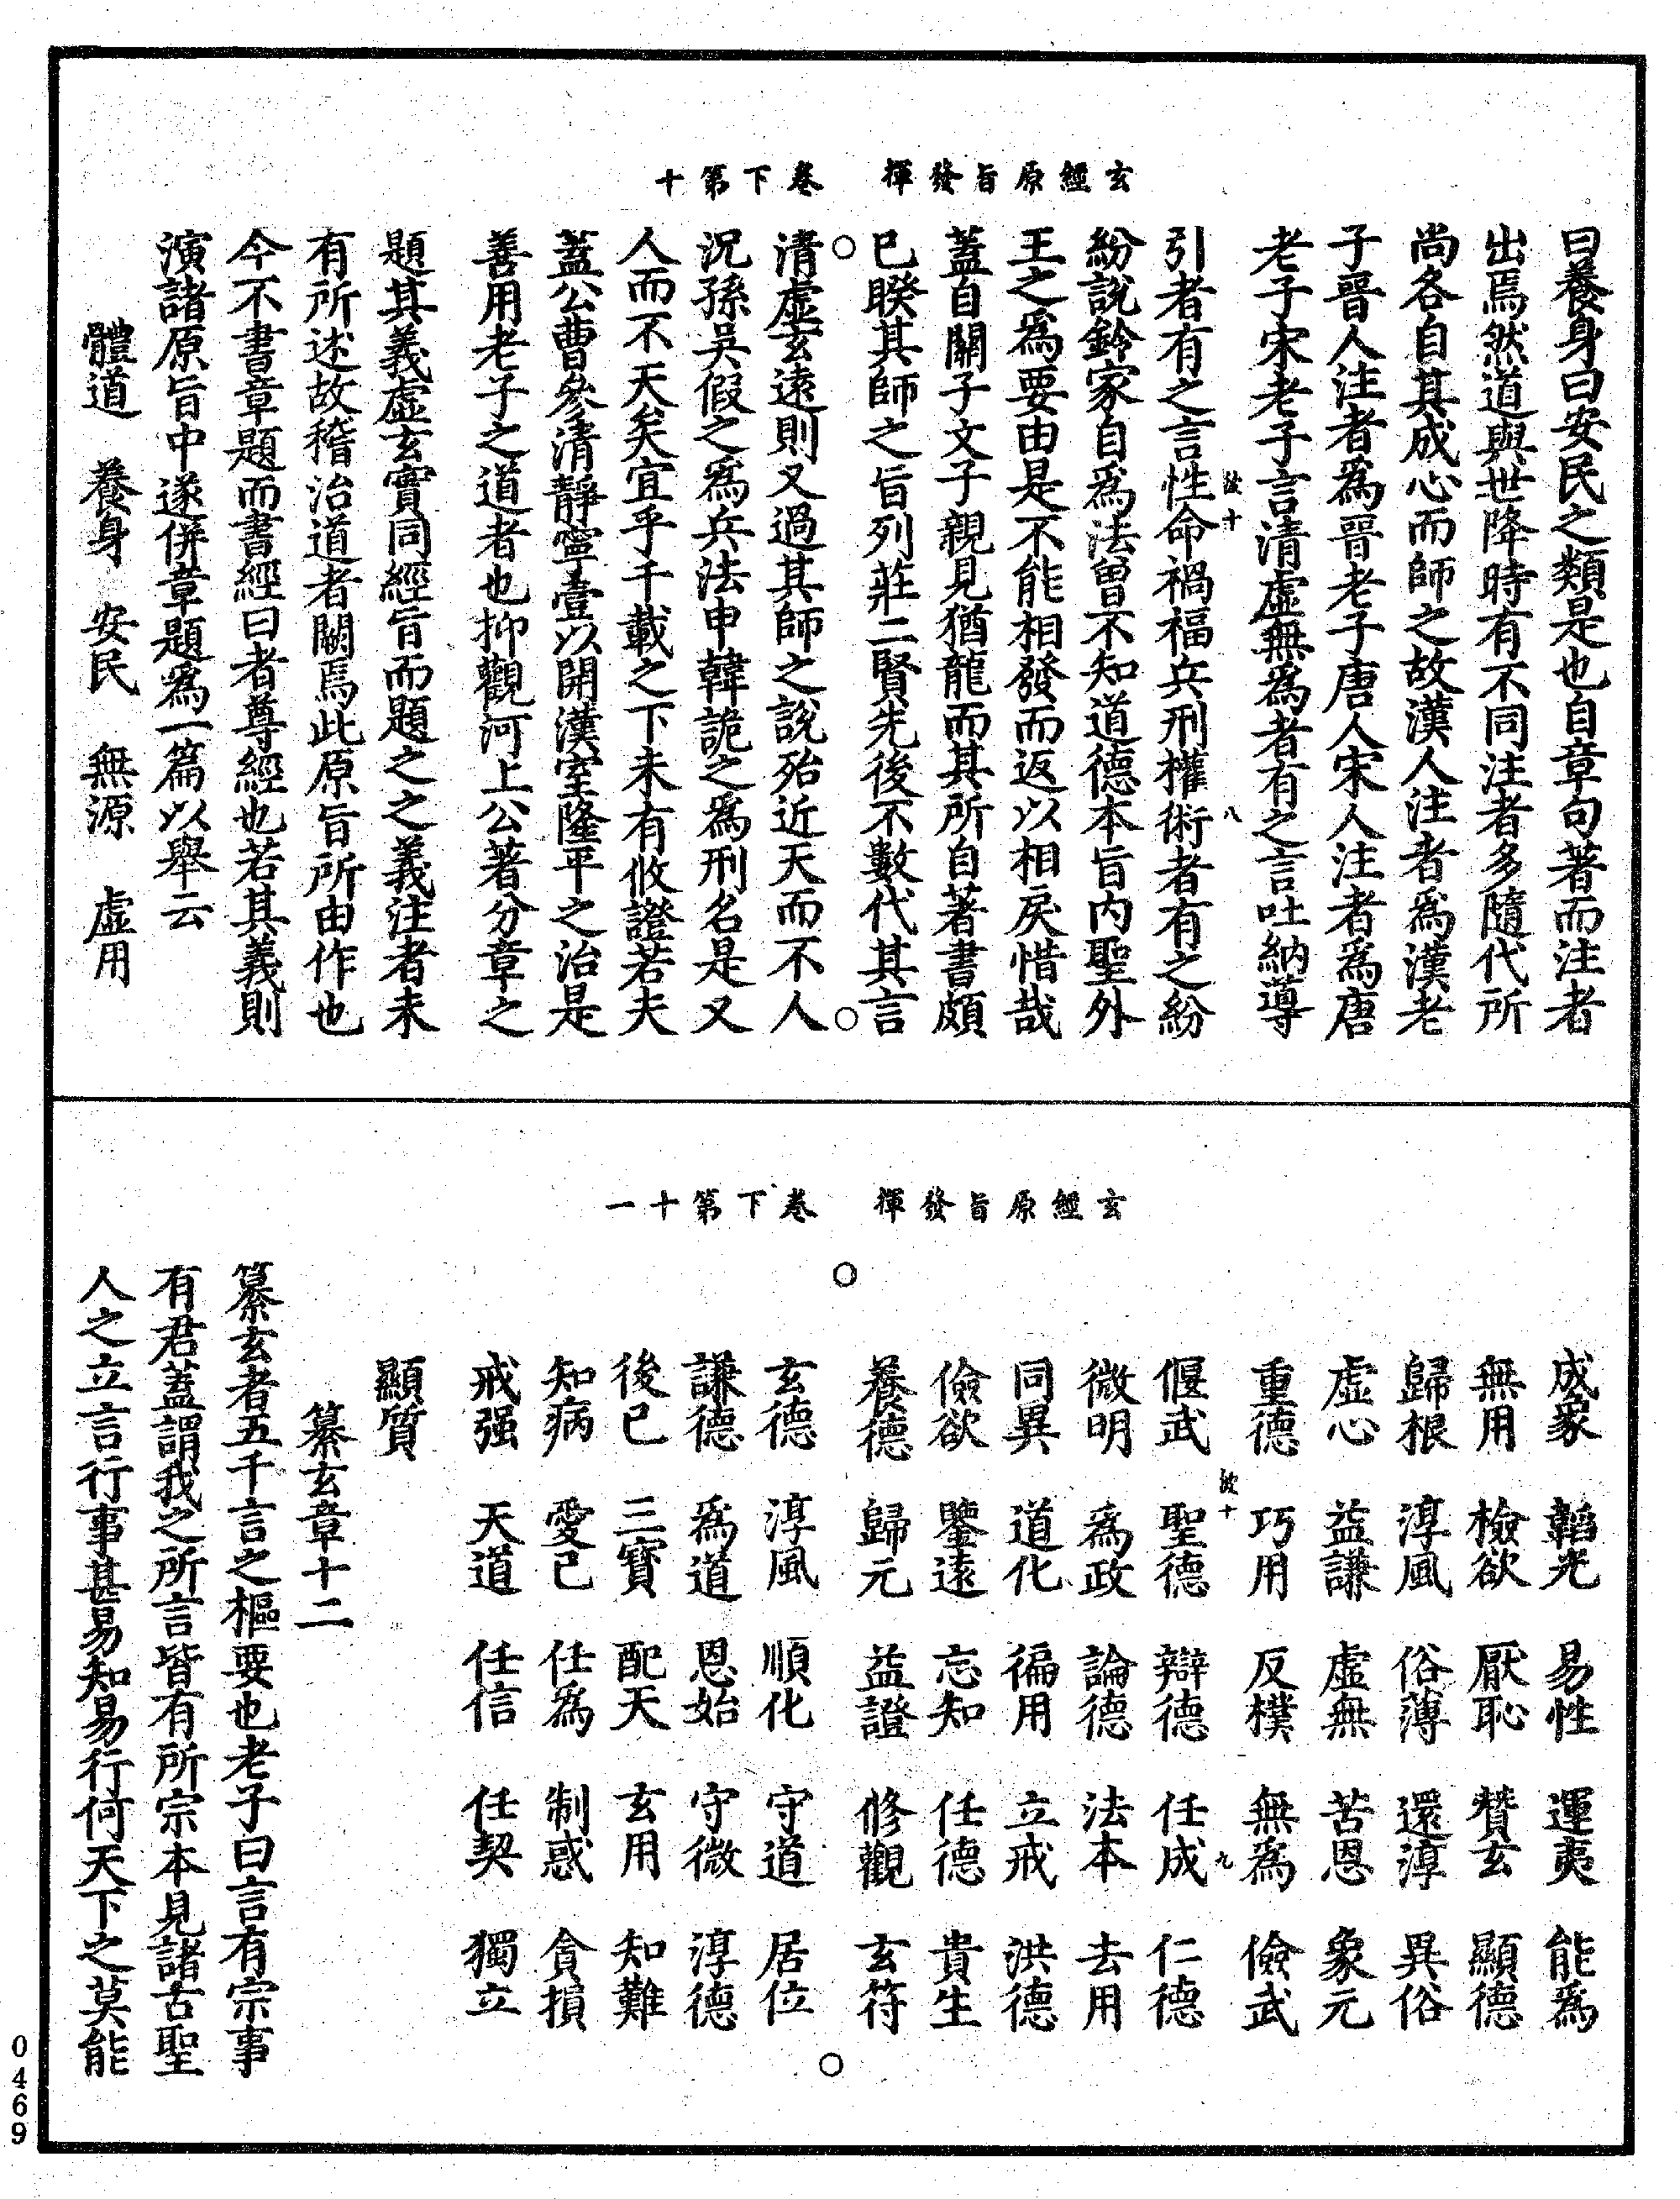 玄經原旨發揮 卷下第十
曰養身曰安民之類是也自章句著而注者
出焉然道與世降時有不同注者多隨代所
尚各自其成心而師之故漢人注者爲漢老
子晉人注者爲晉老子唐人宋人注者爲唐
老子宋老子言清虛無爲者有之言吐納導
彼十 八
引者有之言性命禍福兵刑權術者有之紛
紛說鈴家自爲法曾不知道德本旨內聖外
王之爲要由是不能相發而返以相戾惜哉
蓋自關子文子親見猶龍而其所自著書頗
已睽其師之旨列莊二賢先後不數代其言
清虛玄遠則又過其師之說殆近天而不人
況孫吳假之爲兵法申韓詭之爲刑名是又
人而不天矣宜乎千載之下未有攸證若夫
蓋公曹參清靜寧壹以開漢室隆平之治是
善用老子之道者也抑觀河上公著分章之
題其義虛玄實同經旨而題之之義注者未
有所述故稽治道者闕焉此原旨所由作也
今不書章題而書經曰者尊經也若其義則
演諸原旨中遂併章題爲一篇以舉云
體道 養身 安民 無源 虛用
玄經原旨發揮 卷下第十一
成象 韜光 易性 運夷 能爲
無用 檢欲 厭恥 贊玄 顯德
歸根 淳風 俗薄 還淳 異俗
虛心 益謙 虛無 苦恩 象元
重德 巧用 反樸 無爲 儉武
彼十 九
偃武 聖德 辯德 任成 仁德
微明 爲政 論德 法本 去用
同異 道化 徧用 立戒 洪德
儉欲 鑒遠 忘知 任德 貴生
養德 歸元 益證 修觀 玄符
玄德 淳風 順化 守道 居位
謙德 爲道 恩始 守微 淳德
後已 三寶 配天 玄用 知難
知病 愛己 任爲 制惑 貪損
戒强 天道 任信 任契 獨立
顯質
纂玄章十二
纂玄者五千言之樞要也老子曰言有宗事
有君蓋謂我之所言皆有所宗本見諸古聖
人之立言行事甚易知易行何天下之莫能
0469